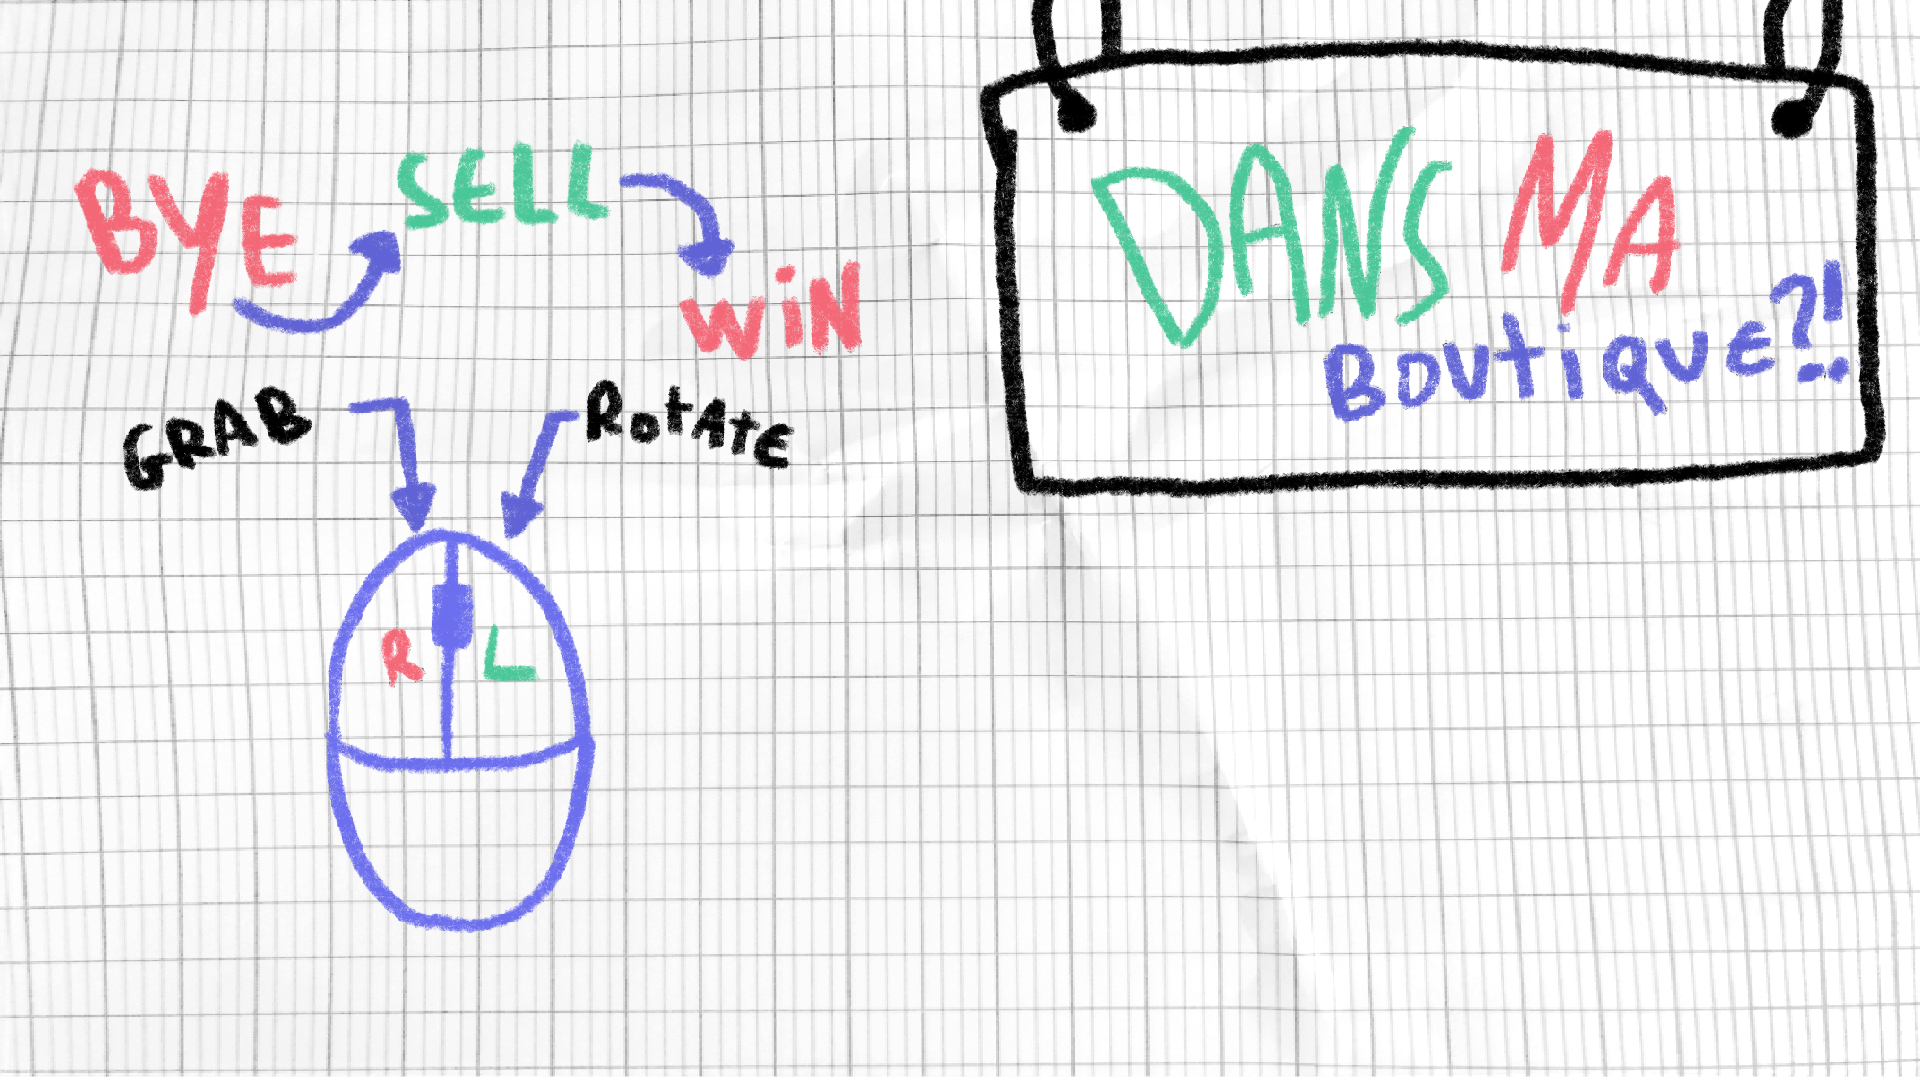 BYE SELL
WiN
GRAB RotAtE
R L
DANS MA
BOUtiQUE?!